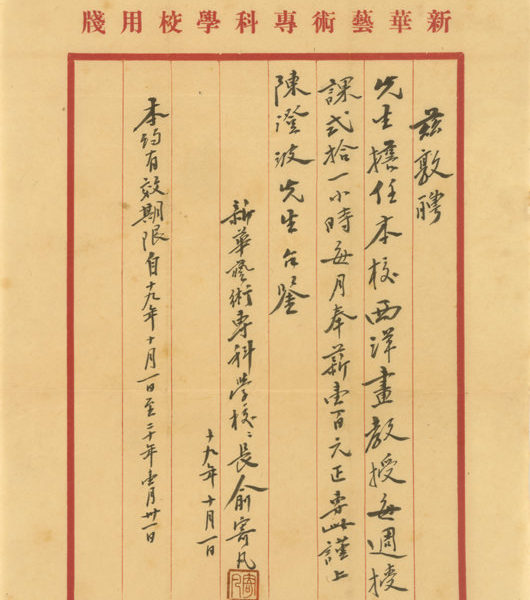 新華藝術專科學校用牋
茲敦聘
先生擔任本校西洋畫教授每週授
課弍拾一小時每月奉薪壹百元正專此謹上
陳澄波先生台鑒
新華藝術專科學校々長俞寄凡
十九年十月一日
本約有效期限自十九年十月一日至二十年壹月卅一日